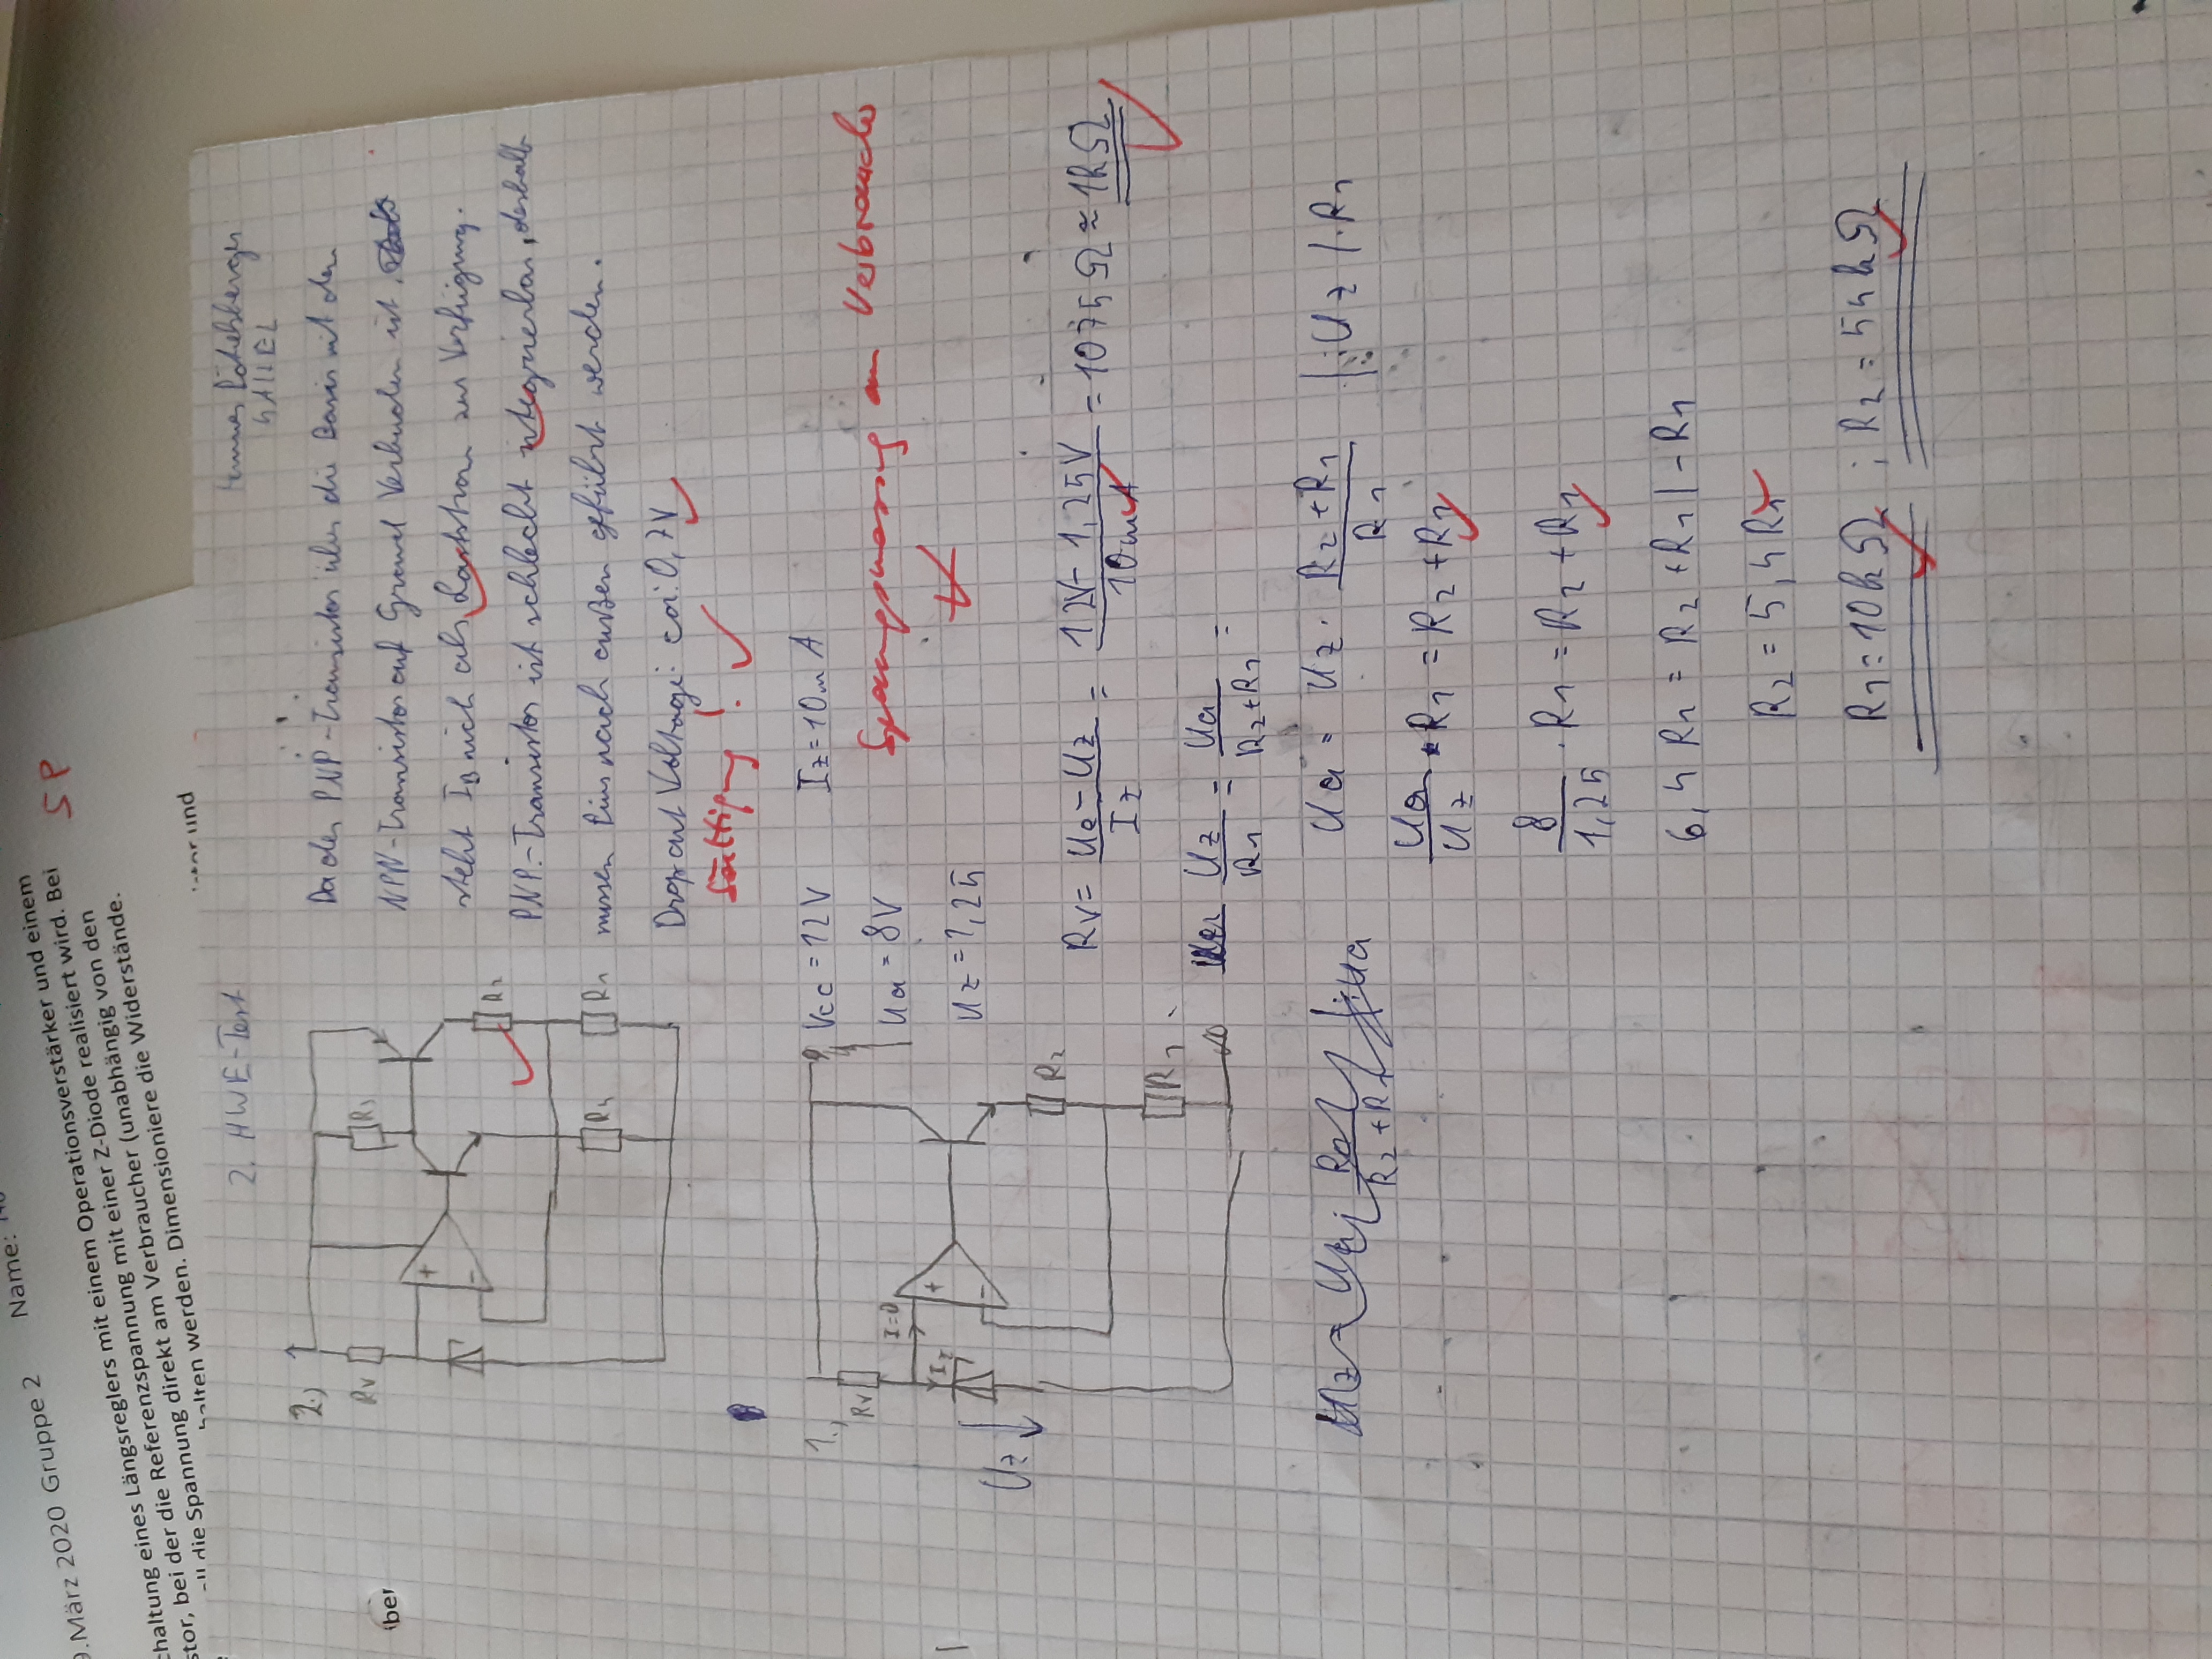 9.März 2020 Gruppe 2 Name:
chaltung eines Längsreglers mit einem Operationsverstärker und einem
stor, bei der die Referenzspannung mit einer Z-Diode realisiert wird. Bei
ll die Spannung direkt am Verbraucher (unabhängig von den
halten werden. Dimensioniere die Widerstände.
und
5 P
ber
2. HWE-Test
2.)
Rv
R3
R2
R4
R1
+
-
Da der PNP-Transistor über die Basis mit dem
NPN-Transistor auf Ground Verbuden ist
steht IB nich als Laststrom zur Verfügung.
PNP.-Transistor ist schlecht integrierbar, deshalb
müssen Pins nach außen geführt werden.
Drop out Voltage: ca: 0,7V
Sättigung !
1.)
Rv
I=0
Iz
Uz
+
-
R2
R1
Vcc = 12V Iz = 10m A
Ua = 8V
Uz = 1,25
Spannungsmessung am Verbraucher
Rv = Ue - Uz / Iz = 12V - 1,25V / 10mA = 1075 Ω ≈ 1kΩ
Uz / R1 = Ua / R2+R1 =
Ua = Uz · R2 + R1 / R1 |:Uz |·R1
Ua / Uz · R1 = R2 + R1
8 / 1,25 · R1 = R2 + R1
6,4 R1 = R2 + R1 | - R1
R2 = 5,4 R1
R1 = 10kΩ ; R2 = 54kΩ